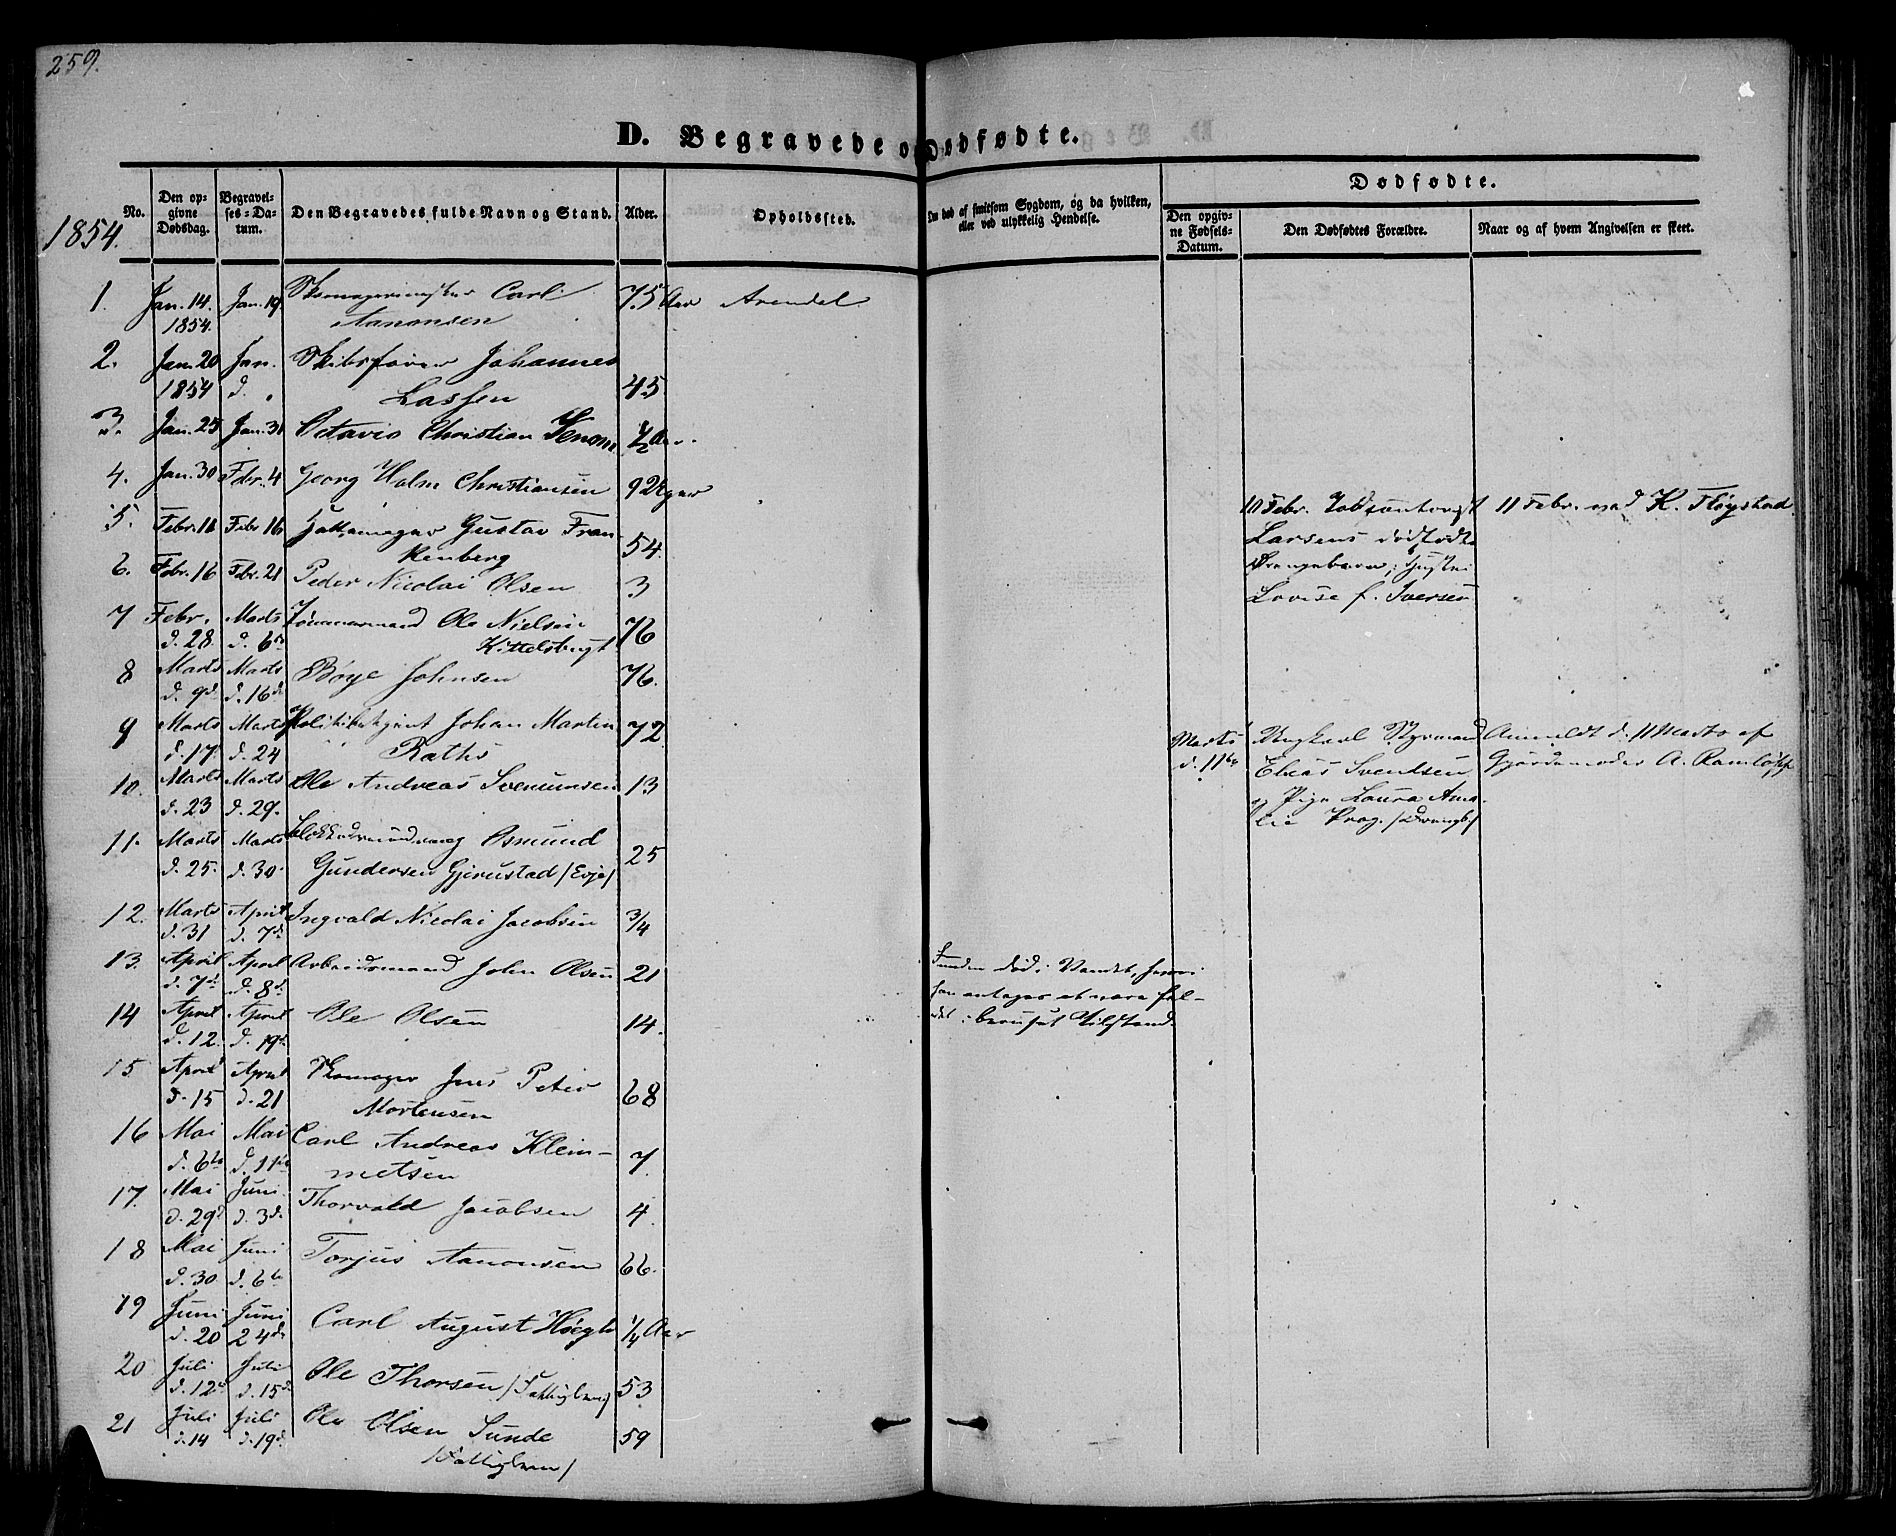 259.
D. Begravede o Dødfødte.
1854.
No.
Den opgivne Dødsdag.
Begravelses-Datum.
Den Begravedes fulde Navn og Stand.
Alder.
Opholdssted.
Om død af smitsom Sygdom, og da hvilken, eller ved ulykkelig Hendelse.
Dødfødte.
Den opgivne Fødsels-Datum.
Den Dødfødtes Forældre.
Naar og af hvem Angivelsen er skeet.
1. Jan. 14. Jan. 19. Skomagermester Carl 75 Aar Arendal
1854. Aanonsen
2. Jan. 20 Jan. Skibsfører Johannes
1854 d. Lassen 45
3. Jan. 25 Jan. 31 Octavio Christian 1/2 Aar.
4. Jan. 30 Febr. 4 Georg Holm Christiansen 92
5. Febr. 11 Febr. 16 Gustav Fran- 54.
kenberg
6. Febr. 16 Febr. 21 Peder Nicolai Olsen 3
10 Febr. 11 Febr. ved K. Fløystad
Larsens dødfødte
Drengebarn; Hustru
Lovise f. Iversen
7 Febr. Marts Tømmermand Ole Nielsen 76
d. 28. d. 6te Kittelsbugt
8 Marts Marts Bøye Johnsen 76.
d. 9d. d. 16d.
9 Marts Marts Politibetjent Johan Martin 72
d. 17. d. 24 Raths
Marts Ungkarl Styrmand Anmeldt d. 11 Marts af
d. 11te Elias Svendsen Gjordemoder A. Ramløff
og Pige Laura Ama-
lie Prag. /Drengb/
10. Marts Marts Ole Andreas Svenumsen 13
d. 23 d. 29.
11. Marts Marts Osmund 25
d. 25. d. 30. Gundersen Gjerustad /Evje/
12. Marts April Ingvald Nicolai Jacobsen 3/4
d. 31 d. 7de
13. April April Arbeidsmand John Olsen 21
d. 7de d. 8de
Funden død i Vandet, hvori
han antages at være fal-
det i beruset Tilstand.
14 April April Ole Olsen 14.
d. 12. d. 19de
15 April April Skomager Jens Peter 68
d. 15 d. 21 Mortensen
16 Mai Mai Carl Andreas Klem- 7
d. 6te d. 11te metsen
17. Mai Juni Thorvald Jacobsen 4.
d. 29d d. 3de
18 Mai Juni Torjus Aanonsen 66.
d. 30 d. 6te
19 Juni Juni Carl August Høegh 1/4 Aar
d. 20 24de
20 Juli Juli Ole Thorsen /Fattiglem/ 53
d. 12d d. 15de
21 Juli Juli Ole Olsen Sunde 59
d. 14 d. 19de /Fattiglem/